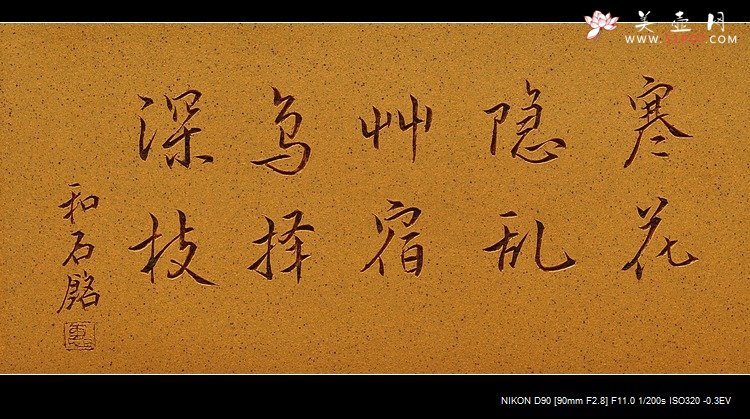 寒花
隐乱
艸宿
鸟择
深枝
和石銘
美壶网
NIKON D90 [90mm F2.8] F11.0 1/200s ISO320 -0.3EV